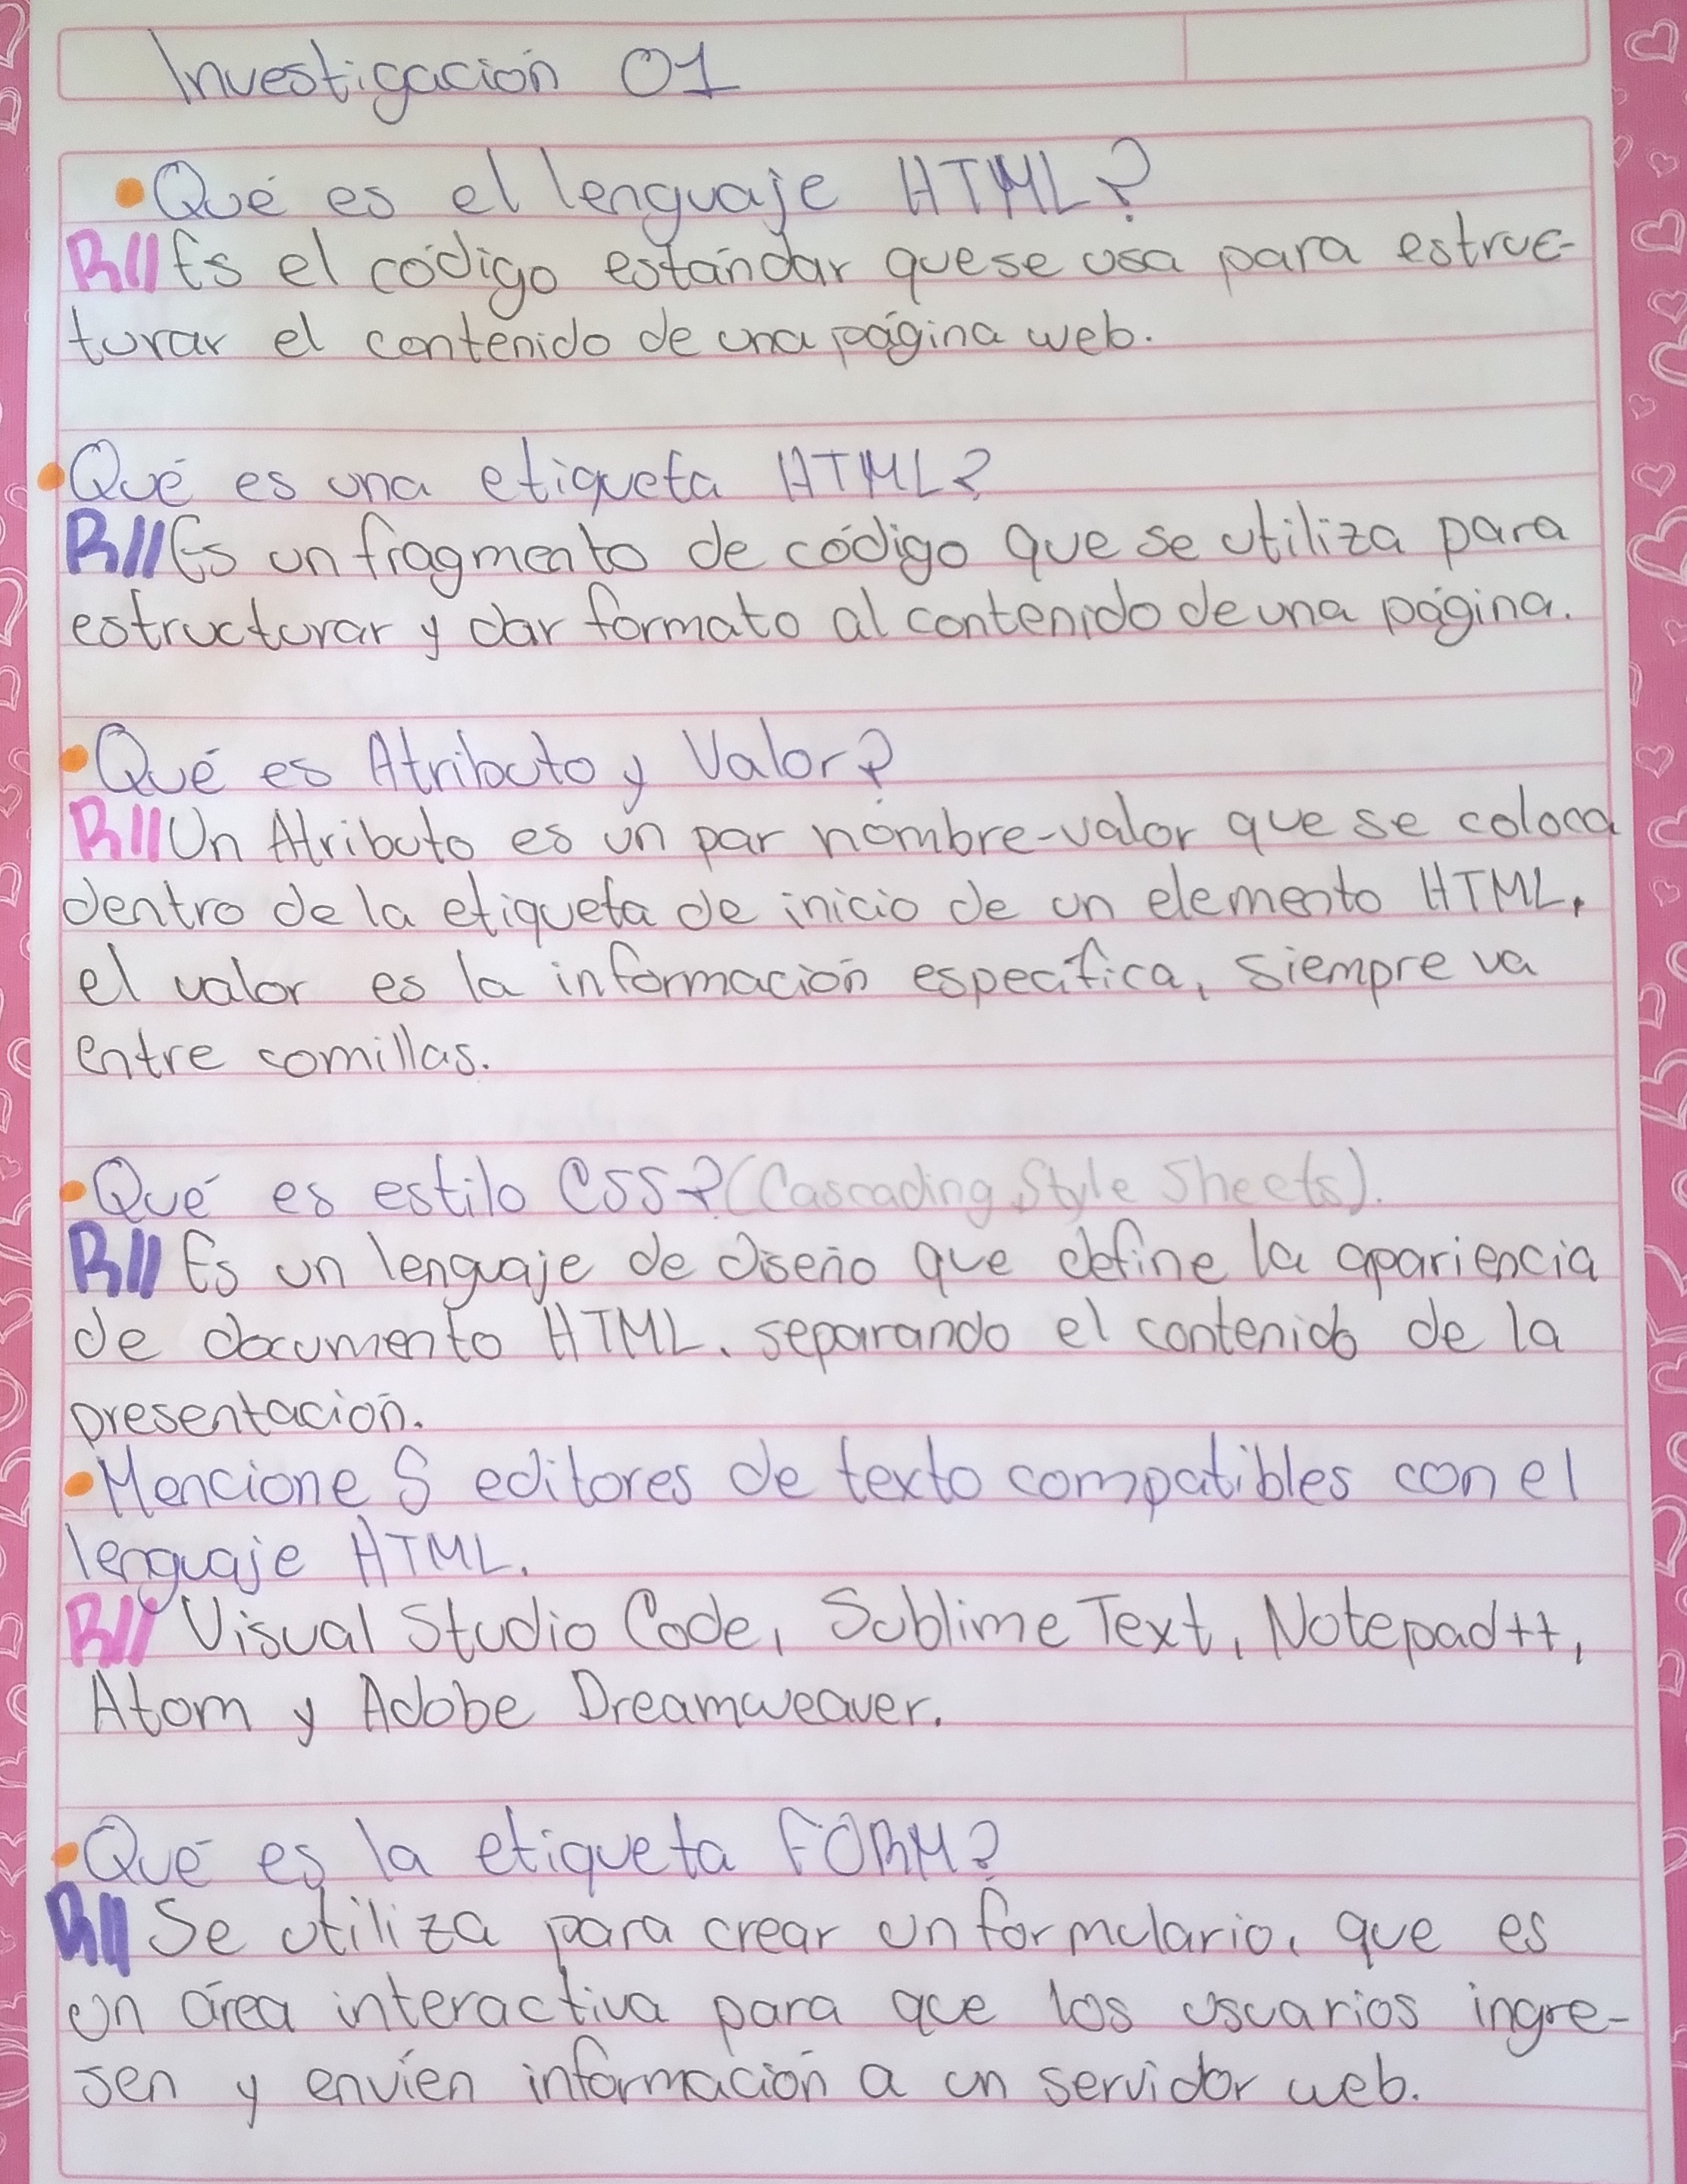 Investigación 01
• Qué es el lenguaje HTML?
R// Es el código estándar que se usa para estruc-
turar el contenido de una página web.
• Qué es una etiqueta HTML?
R// Es un fragmento de código que se utiliza para
estructurar y dar formato al contenido de una página.
• Qué es Atributo y Valor?
R// Un Atributo es un par nombre-valor que se coloca
dentro de la etiqueta de inicio de un elemento HTML,
el valor es la información específica, siempre va
entre comillas.
• Qué es estilo CSS? (Cascading Style Sheets).
R// Es un lenguaje de diseño que define la apariencia
de documento HTML, separando el contenido de la
presentación.
• Mencione 5 editores de texto compatibles con el
lenguaje HTML.
R// Visual Studio Code, Sublime Text, Notepad++,
Atom y Adobe Dreamweaver.
• Qué es la etiqueta FORM?
R// Se utiliza para crear un formulario, que es
un área interactiva para que los usuarios ingre-
sen y envíen información a un servidor web.